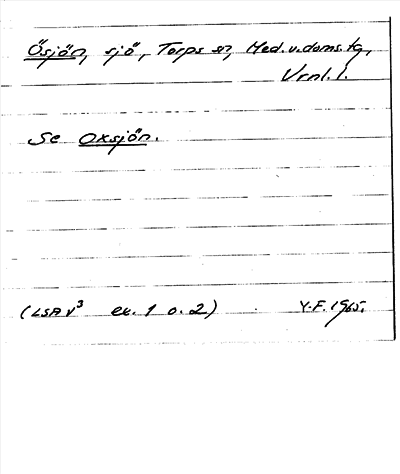 Ösjön, sjö, Torps sn, Med.v.doms.tg,
Vrnl.l.
Se Oxsjön.
(LSA V³ ex. 1 o. 2) Y.F. 1965.